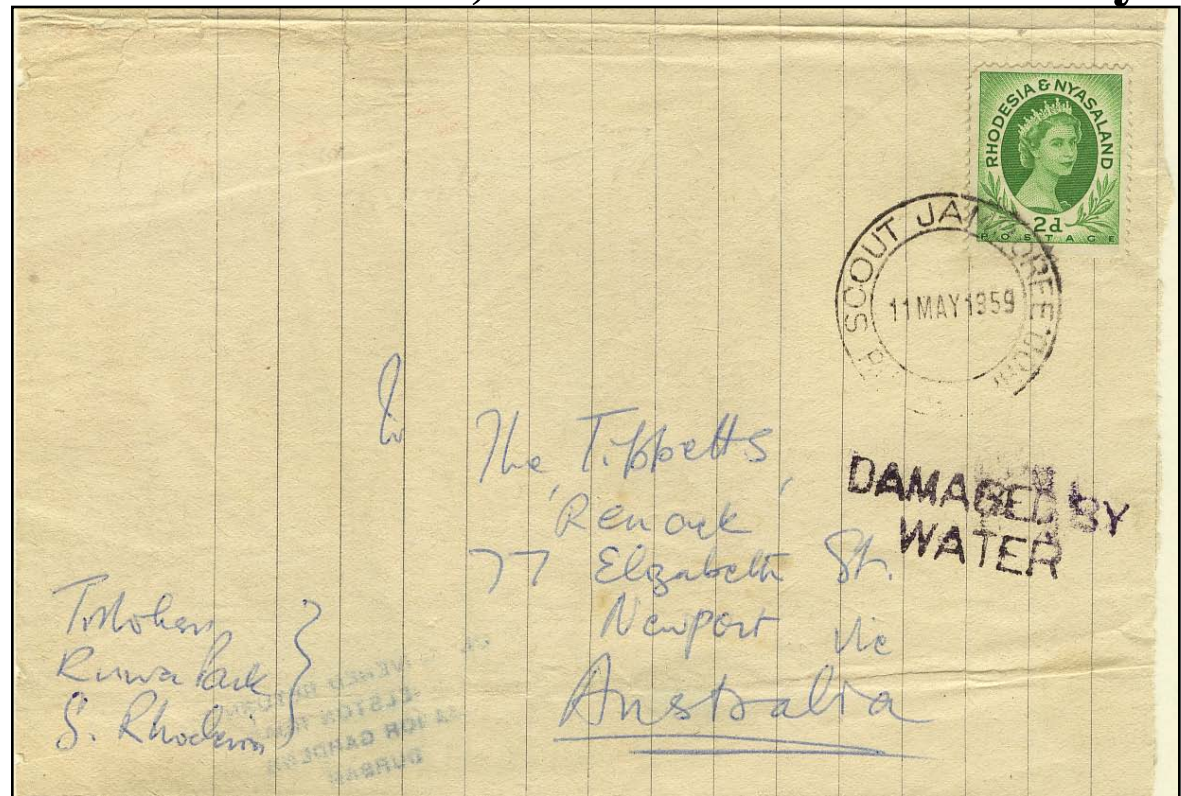 RHODESIA & NYASALAND
2d
POSTAGE
SCOUT JAMBOREE
11 MAY 1959
To
The Tippetts,
77 Elizabeth St.
Newport Vic
Australia
DAMAGED BY
WATER
Ruwa Park
S. Rhodesia
DURBAN